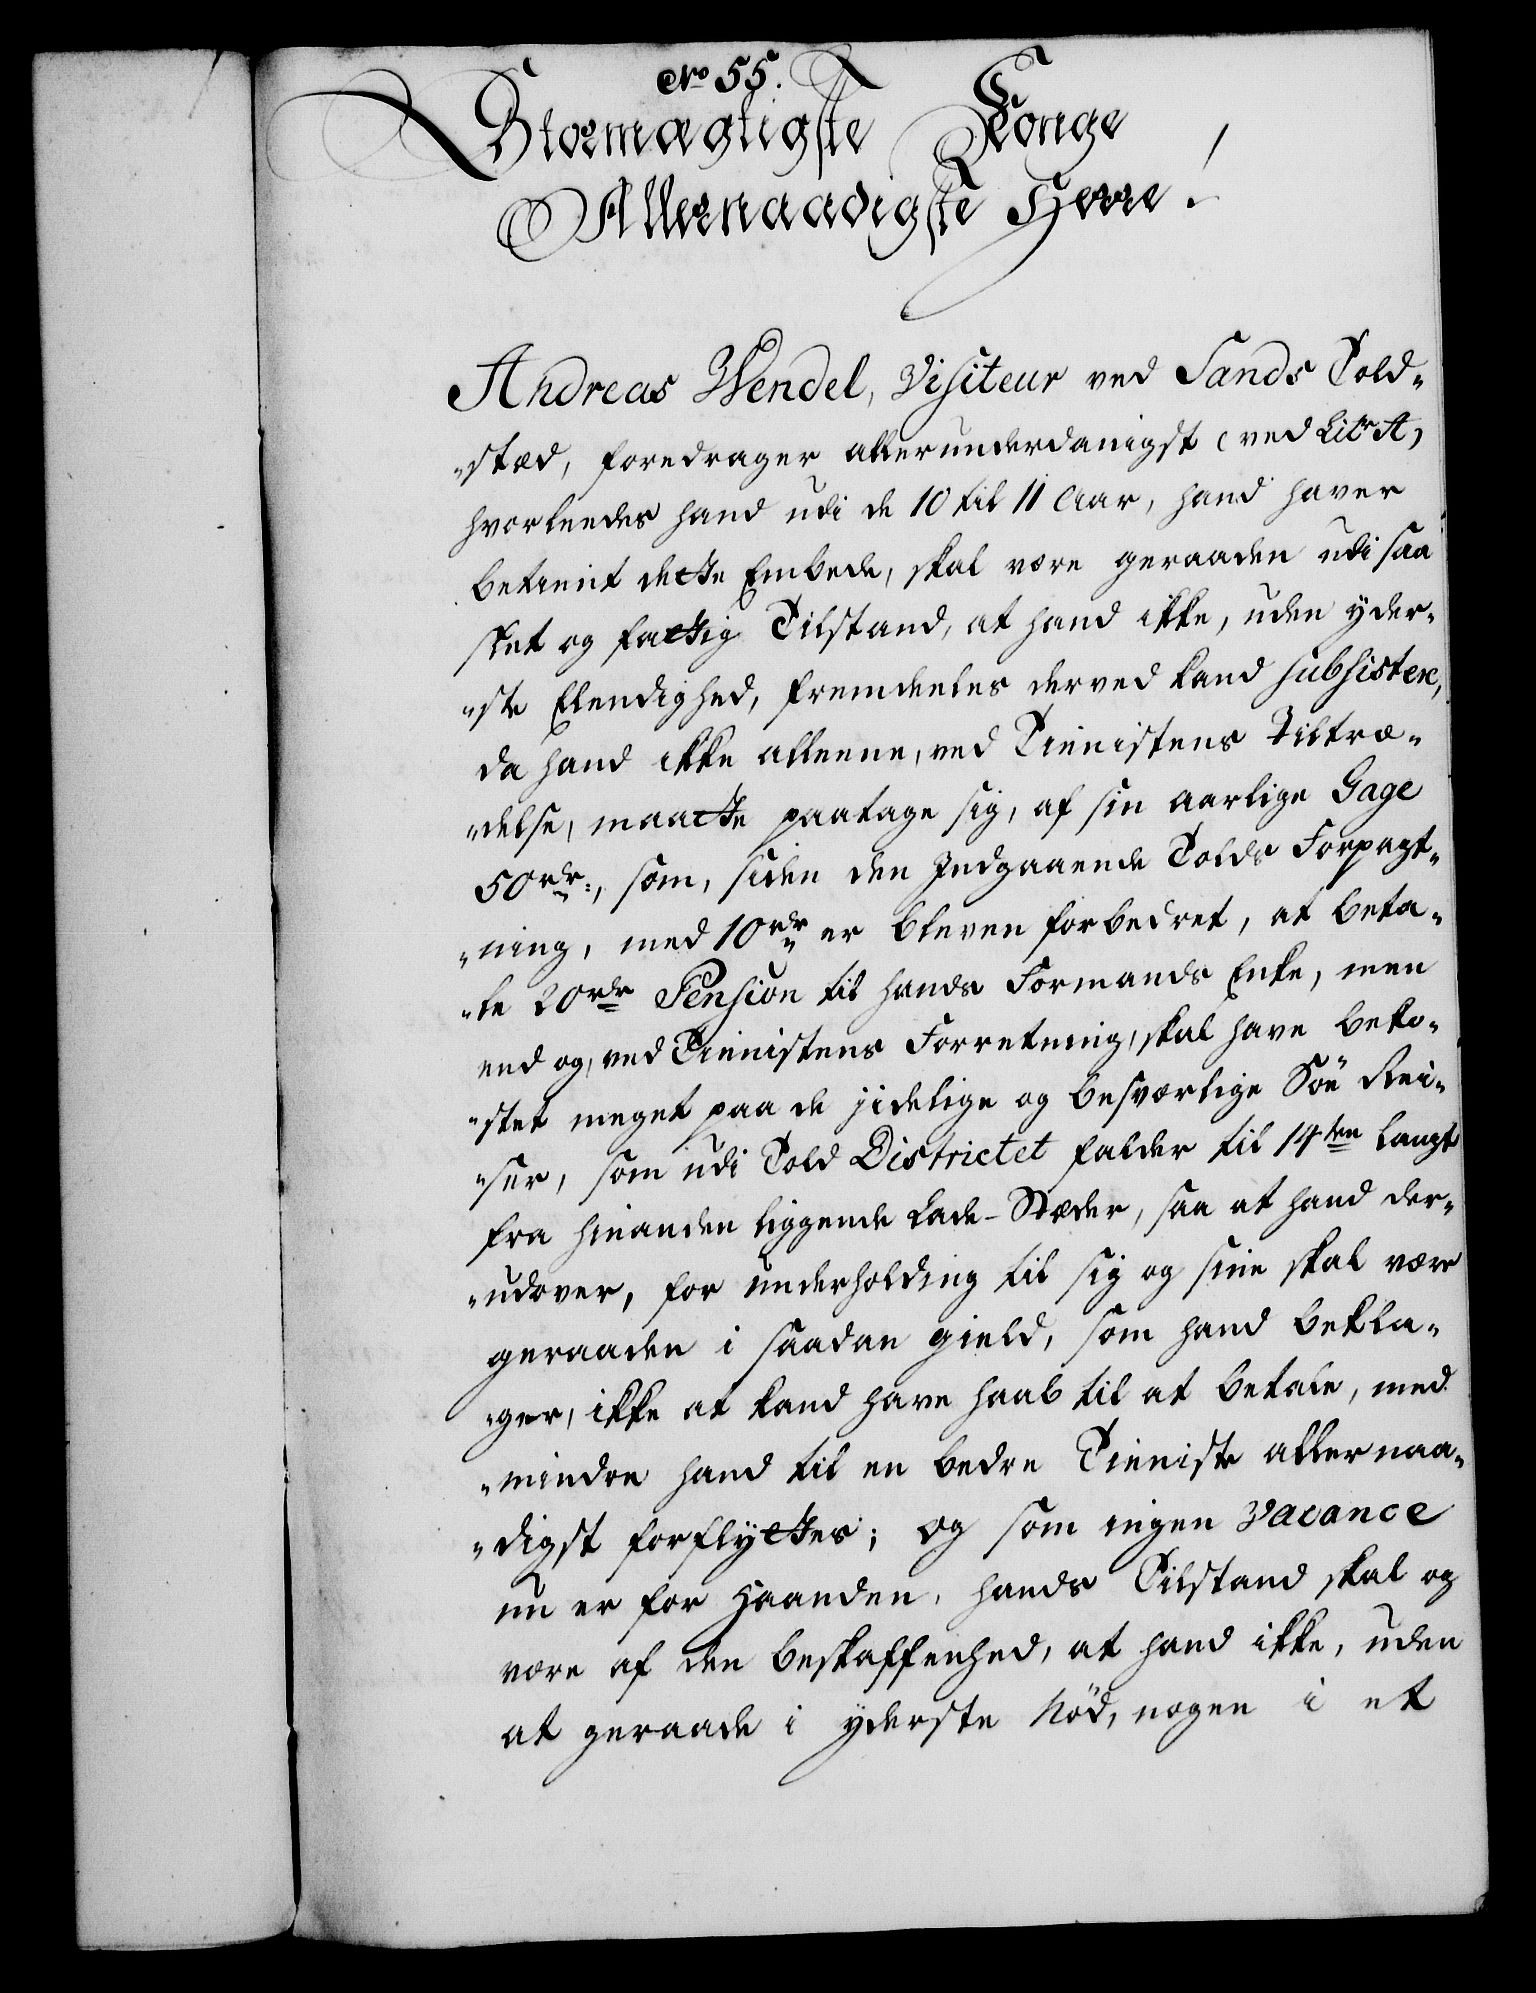 No 55.
Stormægtigste Konge
Allernaadigste Herre!
Andreas Wendel, Visiteur ved Sands Told-
-stæd, foredrager allerunderdanigst (ved Litr A)
hvorleedes hand udi de 10 til 11 Aar, hand haver
betient dette Embede, skal være geraaden udi saa
slet og fattig Tilstand, at hand ikke, uden yder-
-ste Elendighed, fremdeeles derved kand subsistere,
da hand ikke alleene, ved Tienistens Tiltræ-
-delse, maatte paatage sig, af sin aarlige Gage
50 rdr:, som, siden den Indgaaende Tolds Forpagt-
-ning, med 10 rdr er bleven forbedret, at beta-
-le 20 rdr Pension til hands Formands Enke, men
end og, ved Tienistens Forretning, skal have beko-
-stet meget paa de jidelige og besværlige Söe Rei-
-ser, som udi Told Districtet falder til 14ten langt
fra hinanden liggende Lade-Stæder, saa at hand der-
-udover, for underholding til sig og sine skal være
geraaden i saadan gield, som hand bekla-
-ger, ikke at kand have haab til at betale, med
-mindre hand til en bedre Tieniste allernaa-
-digst forflyttes; og som ingen Vacance
nu er for Haanden, hands Tilstand skal og
være af den beskaffenhed, at hand ikke, uden
at geraade i yderste Nöd, nogen i et